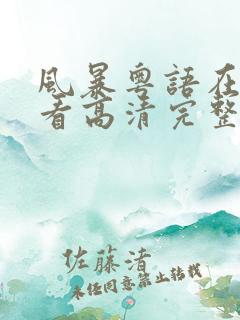 風暴粵語在
看高清完整
佐藤渚
未经同意禁止转载